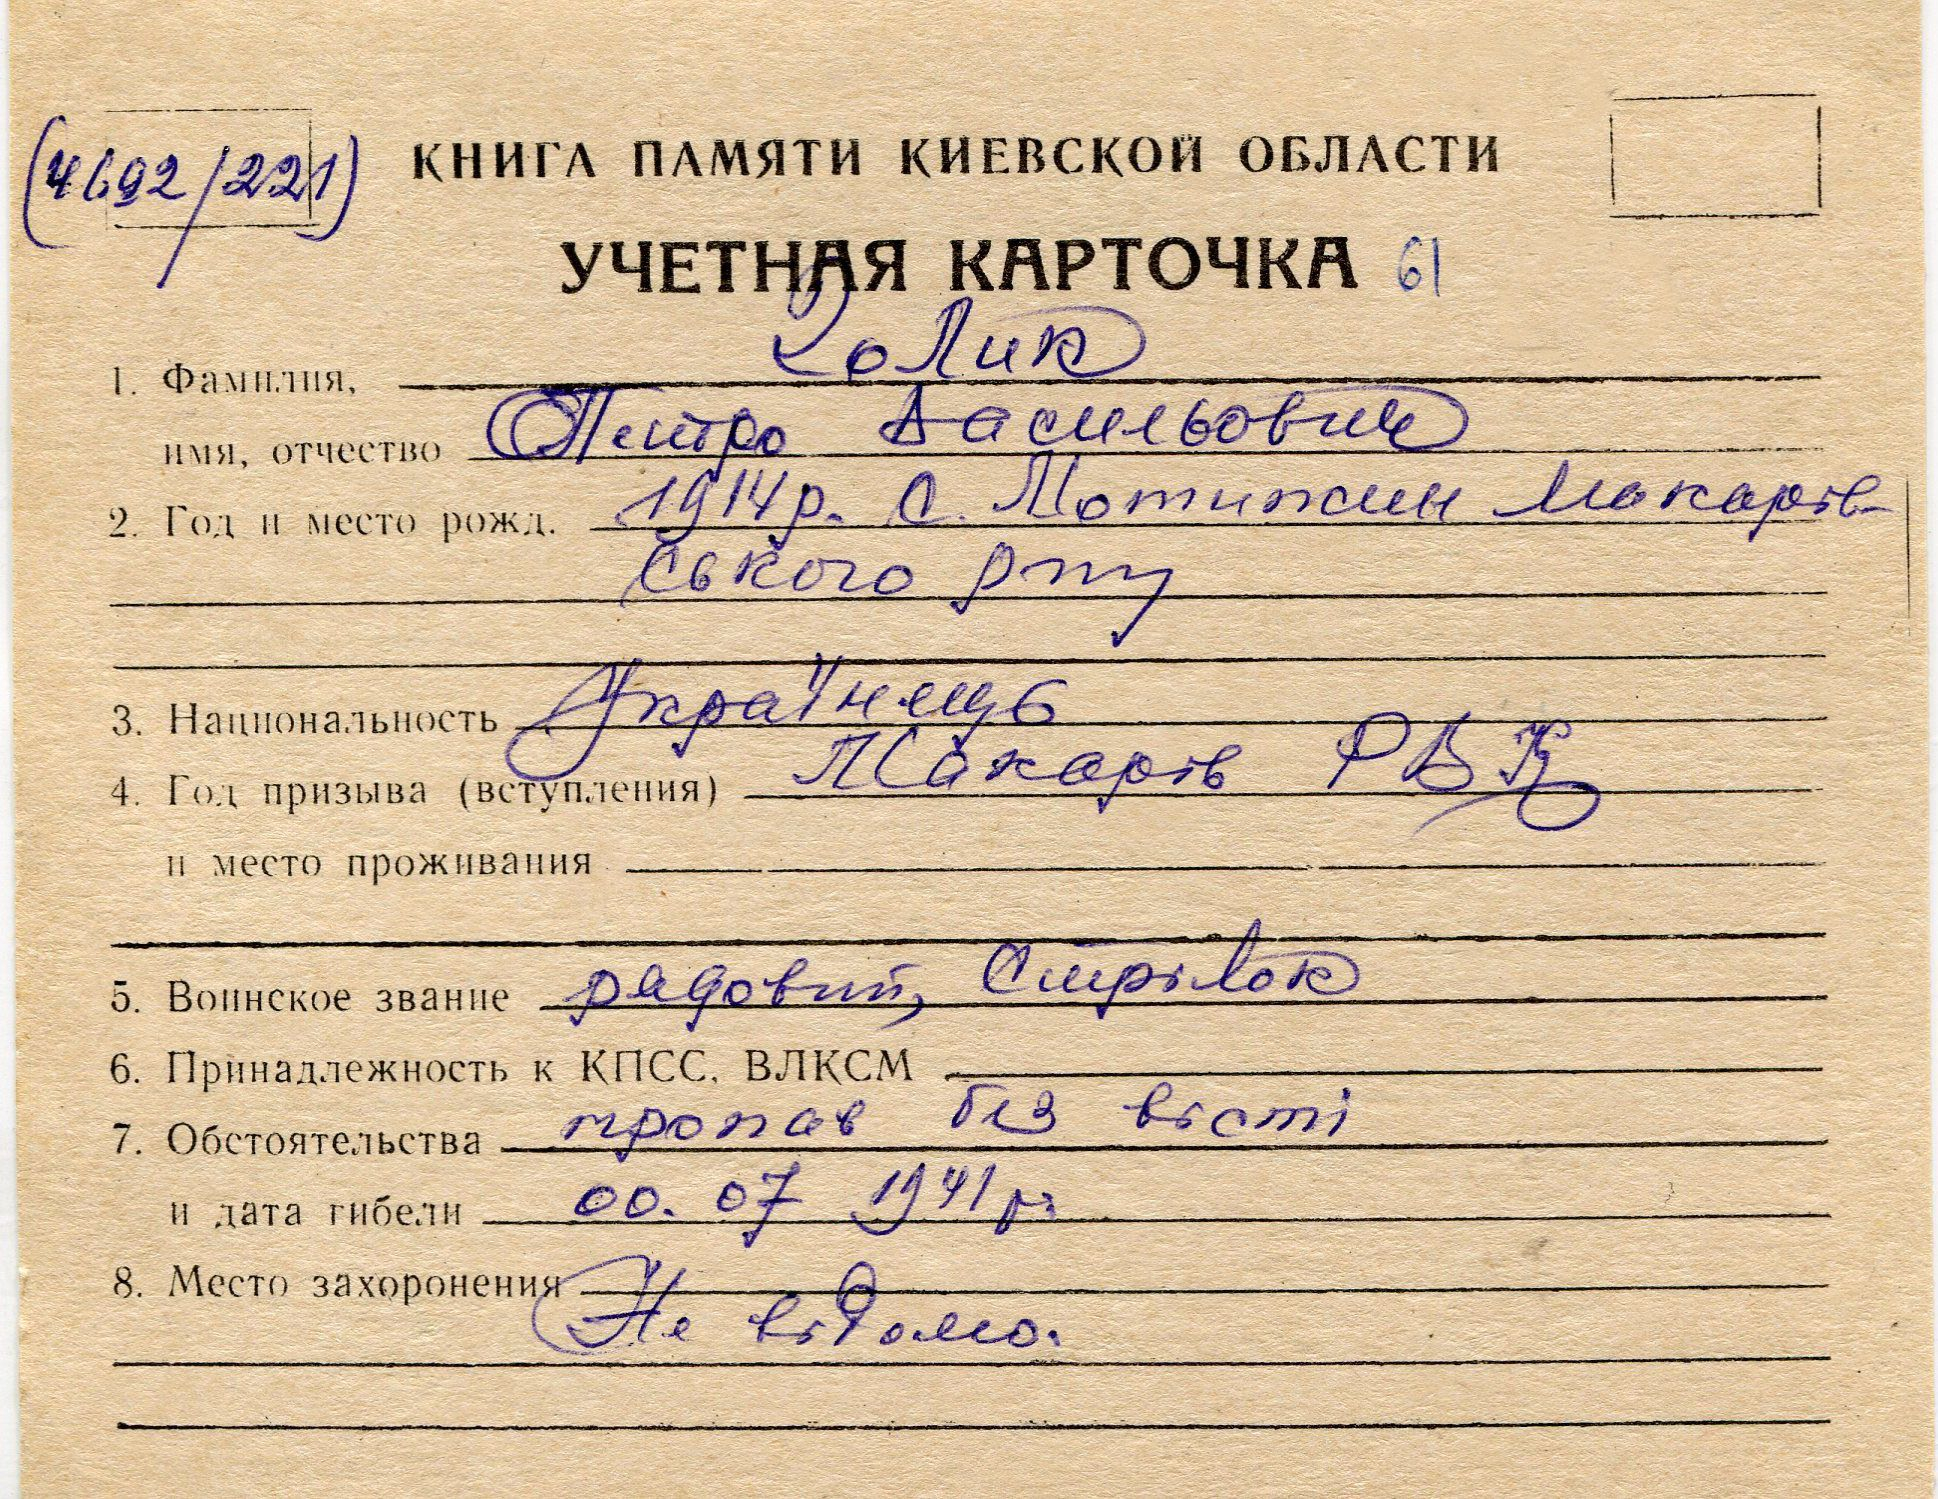 (4692/221)
КНИГА ПАМЯТИ КИЕВСКОЙ ОБЛАСТИ
УЧЕТНАЯ КАРТОЧКА 61
1. Фамилия,
имя, отчество Петро Васильович
2. Год и место рожд. 1914 р. с. Мотижин Макарів-
ського р-ну
3. Национальность Українець
4. Год призыва (вступления) Макарів РВК
и место проживания
5. Воинское звание рядовий, Стрілок
6. Принадлежность к КПСС, ВЛКСМ
7. Обстоятельства пропав без вісті
и дата гибели 00. 07 1941 р.
8. Место захоронения
Не відомо.